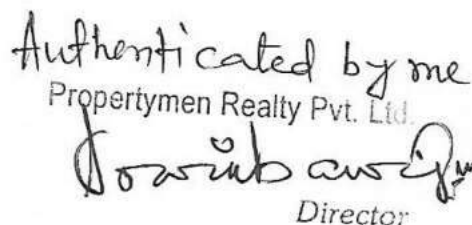 Authenticated by me
Propertymen Realty Pvt. Ltd.
Director